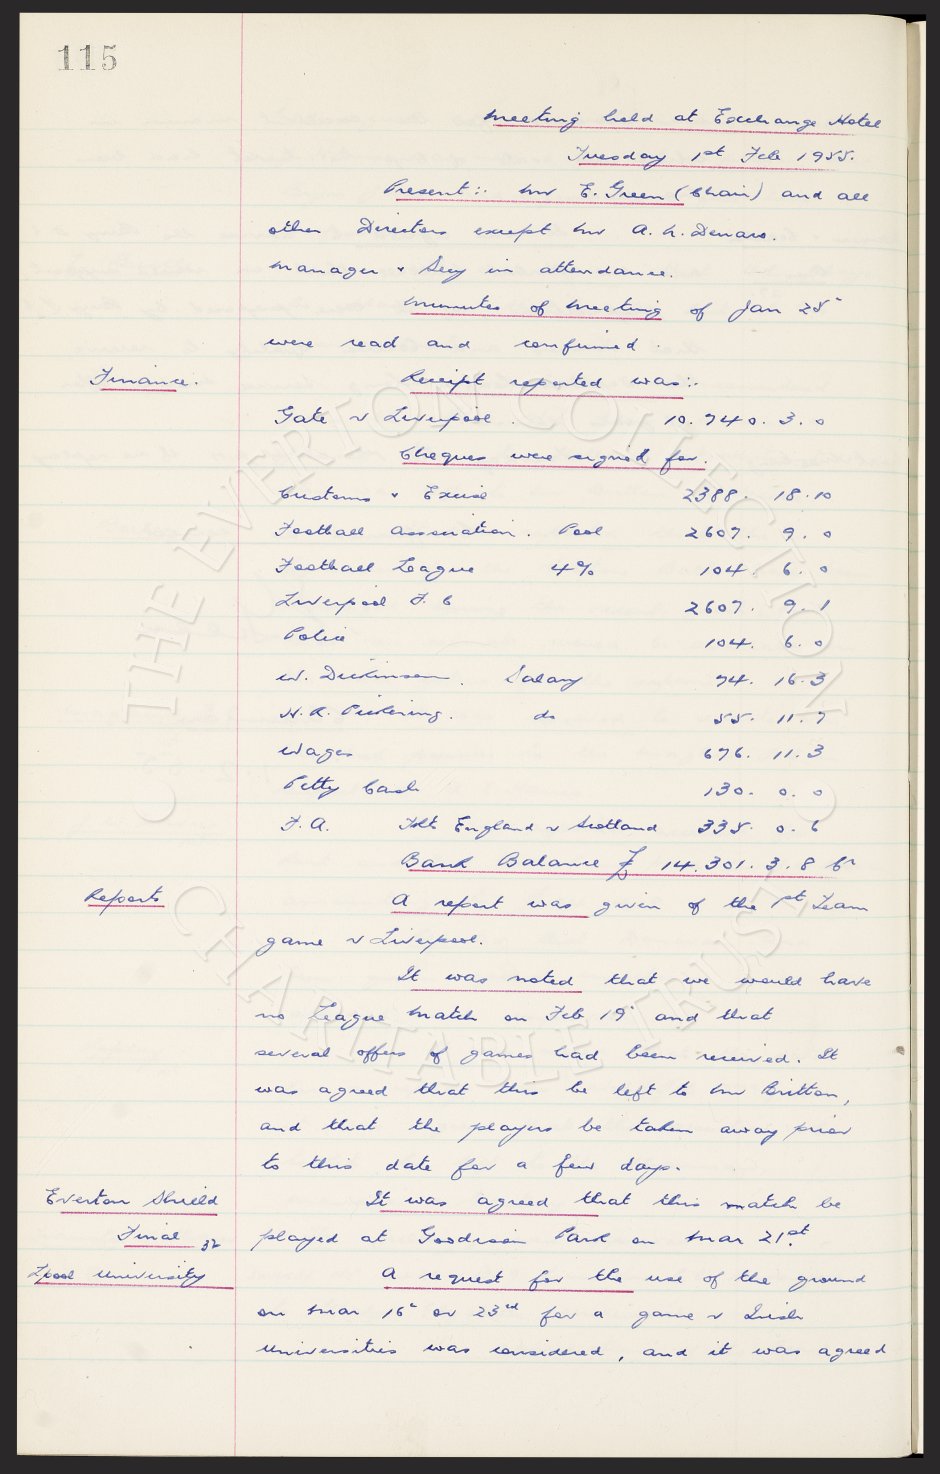 115
Meeting held at Exchange Hotel
Tuesday 1st Feb 1955.
Present:. Mr E. Green (Chair) and all
other Directors except Mr A. L. Denaro.
Manager & Secy in attendance.
Minutes of Meeting of Jan 25"
were read and confirmed.
Finance. Receipt reported was:.
Gate v Liverpool. 10.740.3.0
Cheques were signed for.
Customs & Excise 2388. 18.10
Football Association. Pool 2607. 9. 0
Football League 4% 104. 6. 0
Liverpool F. C 2607. 9. 1
Police 104. 6. 0
W. Dickinson. Salary 74. 16. 3
H. R. Pickering. do 55. 11. 7
Wages 676. 11. 3
Petty Cash 130. 0. 0
F. A. Tkts England v Scotland 335. 0. 6
Bank Balance £ 14.301.3.8 Cr
Reports A report was given of the 1st Team
game v Liverpool.
It was noted that we would have
no League Match on Feb 19" and that
several offers of games had been received. It
was agreed that this be left to Mr Britton,
and that the players be taken away prior
to this date for a few days.
Everton Shield It was agreed that this match be
Final played at Goodison Park on Mar 21st.
Lpool University A request for the use of the ground
on Mar 16" or 23rd for a game v Irish
Universities was considered, and it was agreed
© THE EVERTON COLLECTION
CHARITABLE TRUST